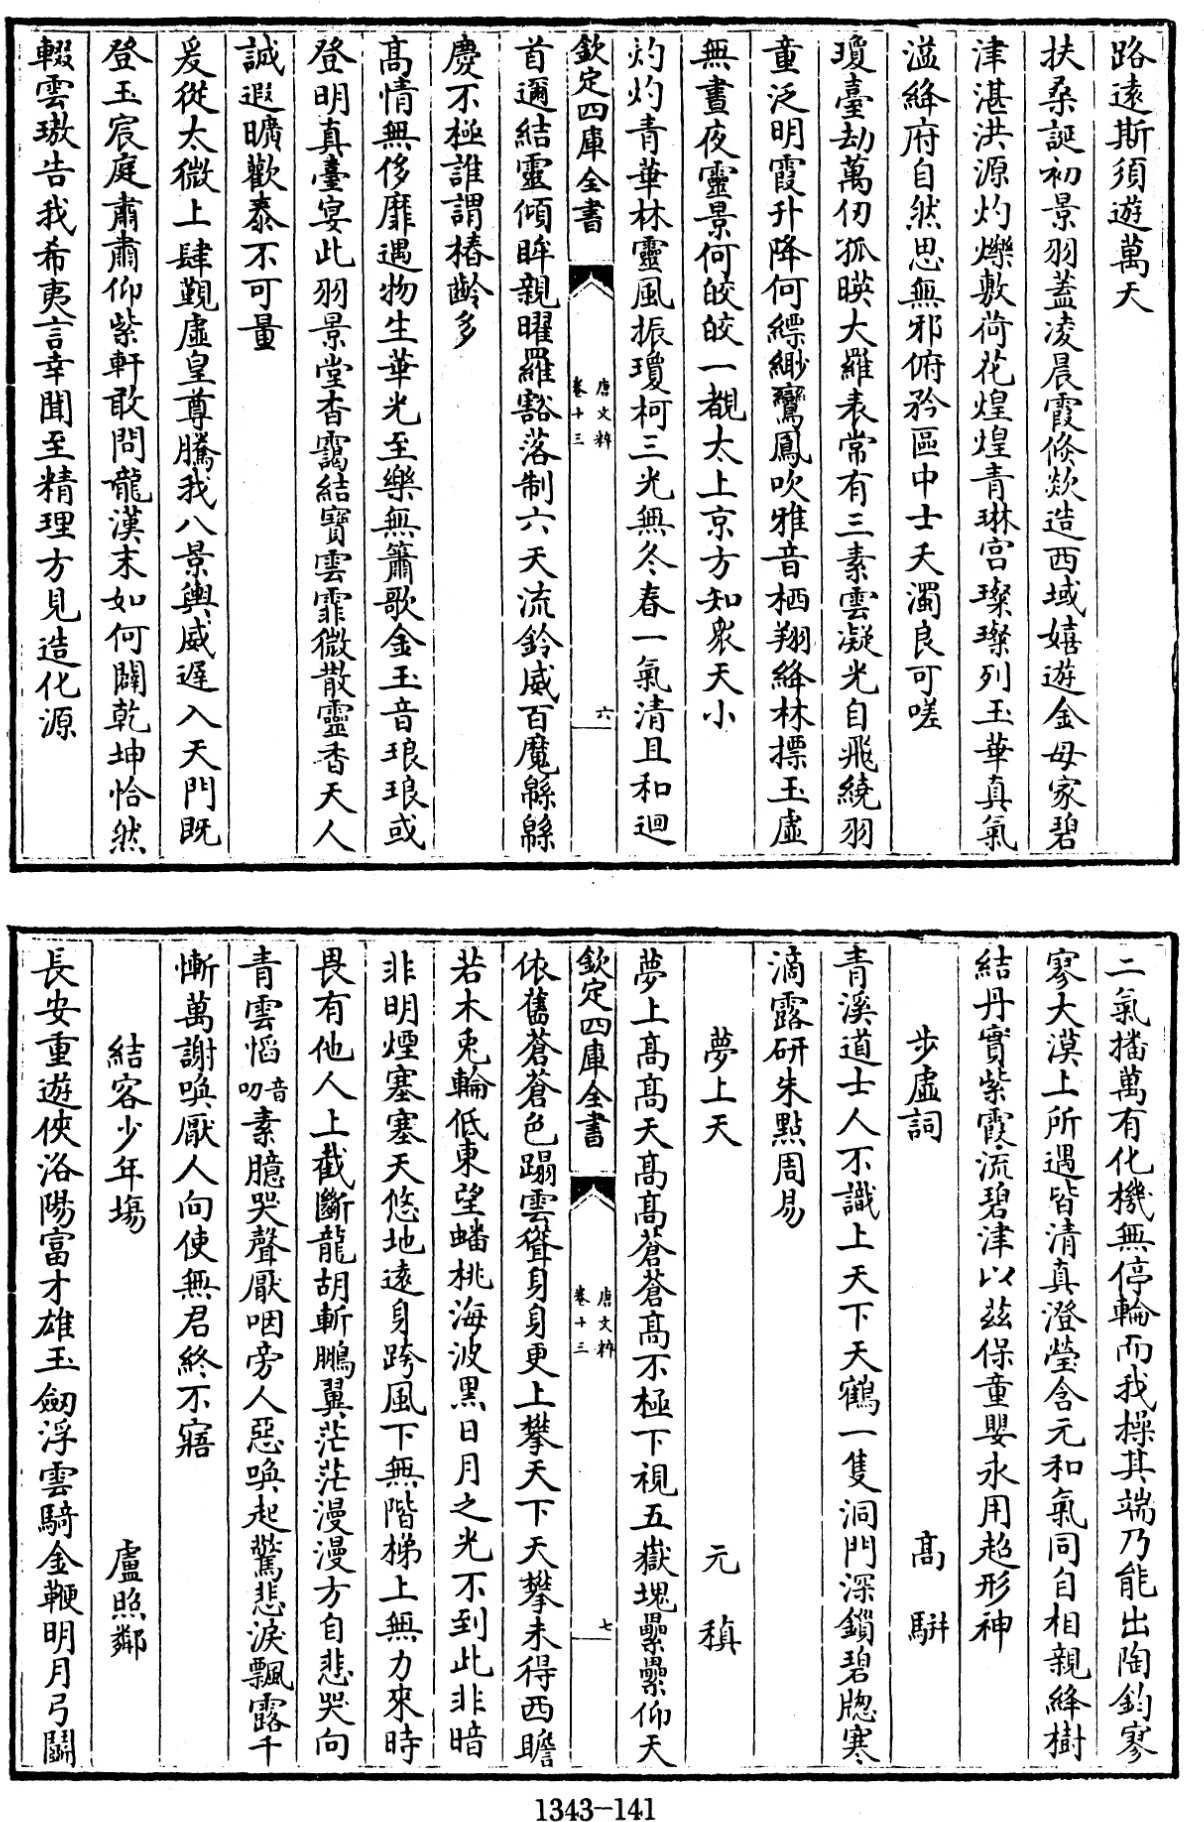 路遠斯須遊萬天
扶桑誕初景羽蓋凌晨霞倏欻造西域嬉遊金母家碧
津湛洪源灼爍敷荷花煌煌青琳宫璨璨列玉華真氣
溢絳府自然思無邪俯矜區中士夭濁良可嗟
瓊臺劫萬仞孤映大羅表常有三素雲凝光自飛繞羽
童泛明霞升降何縹緲鸞鳳吹雅音栖翔絳林摽玉虚
無晝夜靈景何皎皎一覩太上京方知衆天小
灼灼青華林靈風振瓊柯三光無冬春一氣清且和迴
欽定四庫全書
唐文粹
卷十三
六
首邇結靈傾眸親曜羅豁落制六天流鈴威百魔緜緜
慶不極誰謂椿齡多
髙情無侈靡遇物生華光至樂無簫歌金玉音琅琅或
登明真臺宴此羽景堂杳靄結寶雲霏微散靈香天人
誠遐曠歡泰不可量
爰從太微上肆覲虚皇尊騰我八景輿威遲入天門既
登玉宸庭肅肅仰紫軒敢問龍漢末如何闢乾坤恰然
輟雲璈告我希夷言幸聞至精理方見造化源
二氣播萬有化機無停輪而我操其端乃能出陶鈞寥
寥大漠上所遇皆清真澄瑩含元和氣同自相親絳樹
結丹實紫霞流碧津以兹保童嬰永用超形神
步虚詞 髙駢
青溪道士人不識上天下天鶴一隻洞門深鎖碧牕寒
滴露研朱點周易
夢上天 元稹
夢上髙髙天髙髙蒼蒼髙不極下視五嶽塊纍纍仰天
欽定四庫全書
唐文粹
卷十三
七
依舊蒼蒼色蹋雲聳身身更上攀天下天攀未得西瞻
若木兎輪低東望蟠桃海波黒日月之光不到此非暗
非明煙塞塞天悠地遠身跨風下無階梯上無力來時
畏有他人上截斷龍胡斬鵬翼茫茫漫漫方自悲哭向
青雲慆音叨素臆哭聲厭咽旁人惡喚起驚悲淚飄露千
慚萬謝喚厭人向使無君終不寤
結客少年塲 盧照鄰
長安重遊俠洛陽富才雄玉劒浮雲騎金鞭明月弓鬭
1343-141